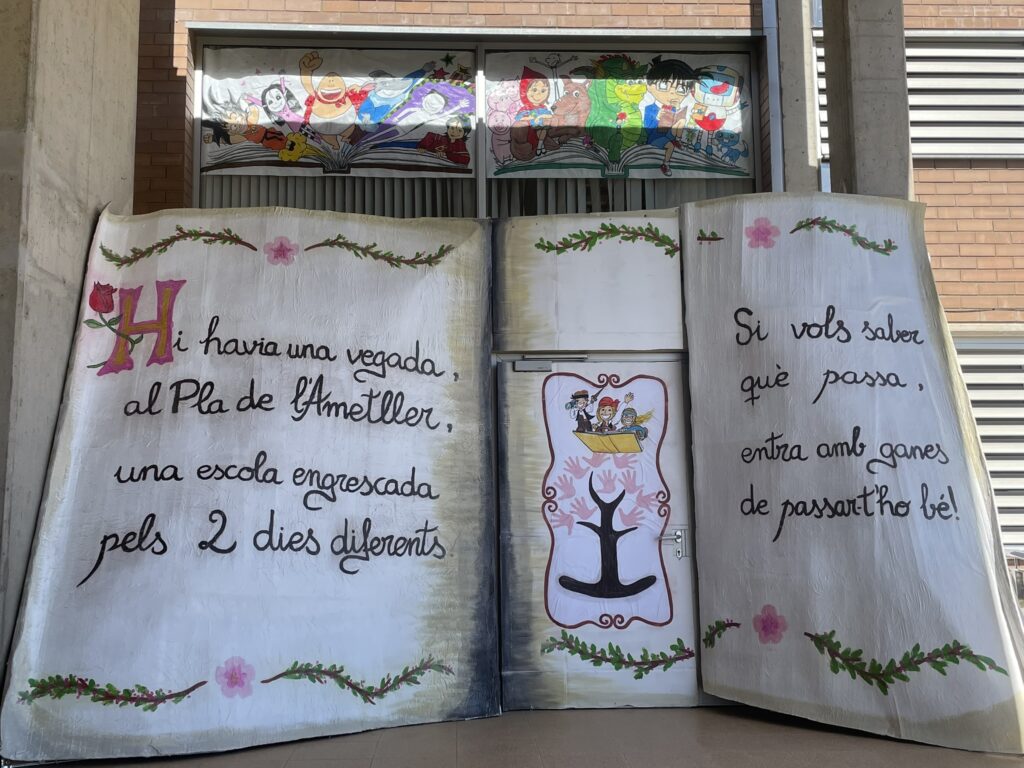 Hi havia una vegada,
al Pla de l'Ametller,
una escola engrescada
pels 2 dies diferents
Si vols saber
què passa,
entra amb ganes
de passar-t'ho bé!